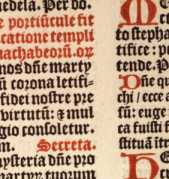 medela. Per do.
e portiũcule fit
catione templi
machabeorũ. oꝛ
nos dñe marty
ũ coꝛona letifi⸗
fidei noſtre pꝛe
virtutũ: ⁊ mul
gio conſoletur.
m. Secreta.
yſteria dñe pꝛo
martyꝝ tuoꝛum
to ſtepha
tifice: po
tende. P
dñe qu
chi / ecce a
ſũ: euge
ca fuiſti f
ſtituã itr